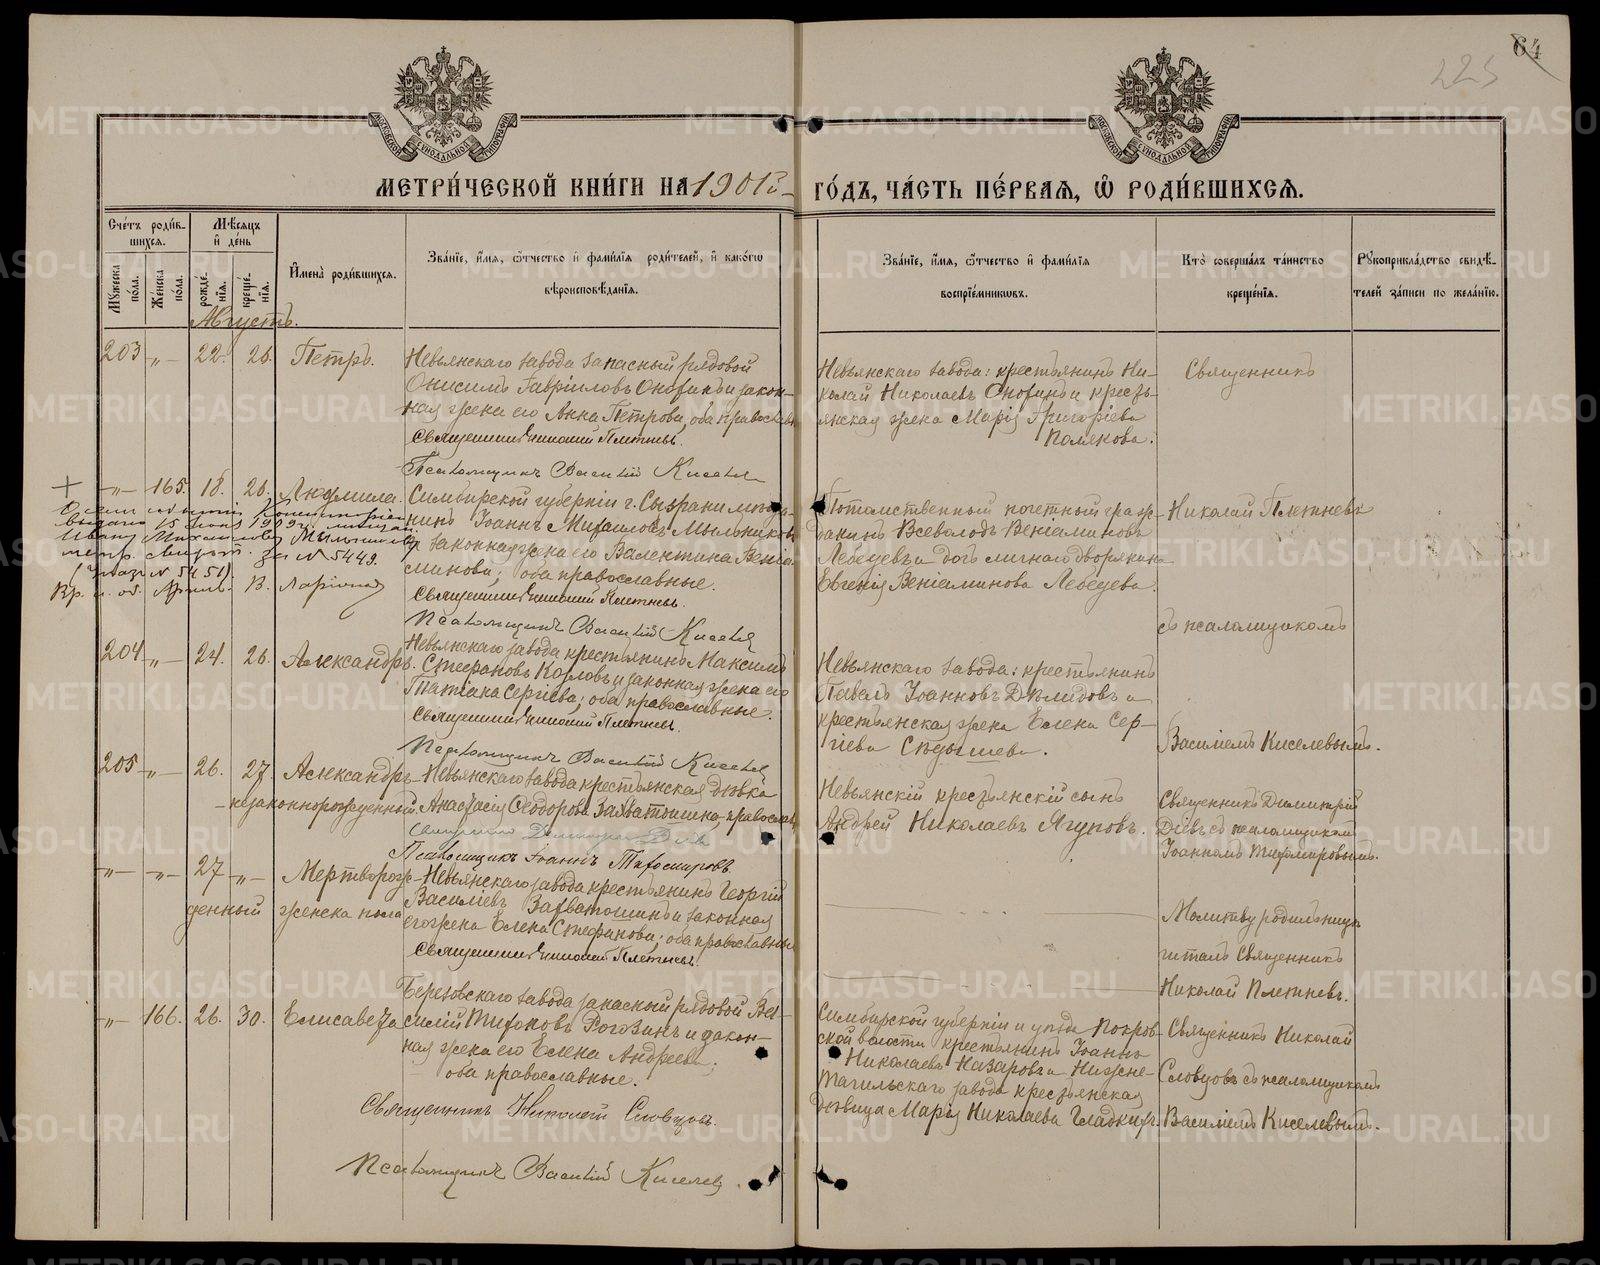 64
223
МОСКОВСКОЙ СѴНОДАЛЬНОЙ ТИПОГРАФІИ
МОСКОВСКОЙ СѴНОДАЛЬНОЙ ТИПОГРАФІИ
МЕТРИ́ЧЕСКОЙ КНИ́ГИ НА 1901й ГО́ДЪ, ЧА́СТЬ ПЕ́РВАЯ, Ѿ РОДИ́ВШИХСЯ.
Сче́тъ роди́вшихся.
Мꙋжеска по́ла.
Же́нска по́ла.
Мѣ́сяцъ и҆ де́нь
рожде́нїя.
креще́нїя.
И҆мена̀ роди́вшихся.
Зва́нїе, и҆́мя, ѻ҆́тчество и҆ фами́лїя роди́телей, и҆ како́гѡ
вѣроисповѣ́данїя.
Зва́нїе, и҆́мя, ѻ҆́тчество и҆ фами́лїя
воспрїе́мникѡвъ.
Кто̀ соверша́лъ та́инство
креще́нїя.
Рꙋкоприкла́дство свидѣ́телей за́писи по жела́нїю.
Августъ.
203 „ 22. 26. Петръ.
Невьянскаго завода запасный рядовой
Онисимъ Гавріиловъ Онохинъ и закон-
ная жена его Анна Петрова, оба православ
Священникъ Николай Плетневъ.
Псаломщикъ Василій Киселев
Невьянскаго завода: крестьянинъ Ни-
колай Николаевъ Онохинъ и кресть-
янская жена Марія Григоріева
Полякова.
Священникъ
„ 165. 18. 26. Людмила.
Симбирской губерніи г. Сызрани мѣща-
нинъ Іоаннъ Михаиловъ Мыльниковъ
и законная жена его Валентина Веніа-
минова; оба православные.
Священникъ Николай Плетневъ.
Псаломщикъ Василій Киселев
Потомственный почетный граж-
данинъ Всеволодъ Веніаминовъ
Лебедевъ и дочь личнаго дворянина
Евгенія Веніаминова Лебедева.
Николай Плетневъ
съ псаломщикомъ
выдано 15 1909г.
Ивану Михайлову Мыльникову
метр. свидѣт. за № 5449.
(указъ № 5451)
204 „ 24. 26. Александръ.
Невьянскаго завода крестьянинъ Максимъ
Стефановъ Козловъ и законная жена его
Татіана Сергіева; оба православные.
Священникъ Николай Плетневъ.
Псаломщикъ Василій Киселев
Невьянскаго завода: крестьянинъ
Павелъ Іоанновъ Демидовъ и
крестьянская жена Елена Сер-
гіева Сѣдышева.
Василіемъ Киселевымъ.
205 „ 26. 27. Александръ
незаконнорожденный.
Невьянскаго завода крестьянская дѣвка
Анастасія Ѳеодорова Захватошина, православ
Священникъ Димитрій Діевъ
Псаломщикъ Іоаннъ Тихомировъ
Невьянскій крестьянскій сынъ
Андрей Николаевъ Ягуповъ.
Священникъ Димитрій
Діевъ съ псаломщикомъ
Іоанномъ Тихомировымъ.
„ „ 27 „ Мертворож-
денный женска пола
Невьянскаго завода крестьянинъ Георгій
Василіевъ Захватошинъ и законная
его жена Елена Стефанова; оба православные
Священникъ Николай Плетневъ.
Молитву родильницѣ
читалъ Священникъ
Николай Плетневъ.
„ 166. 26. 30. Елисавета
Березовскаго завода запасный рядовой Ва-
силій Тихоновъ Рогозинъ и закон-
ная жена его Елена Андреева;
оба православные.
Священникъ Николай Словцовъ.
Псаломщикъ Василій Киселев.
Симбирской губерніи и уѣзда Покров-
ской волости крестьянинъ Іоаннъ
Николаевъ Назаровъ и Нижне-
Тагильскаго завода крестьянская
дѣвица Марія Николаева Гладкихъ.
Священникъ Николай
Словцовъ съ псаломщикомъ
Василіемъ Киселевымъ.
METRIKI.GASO-URAL.RU